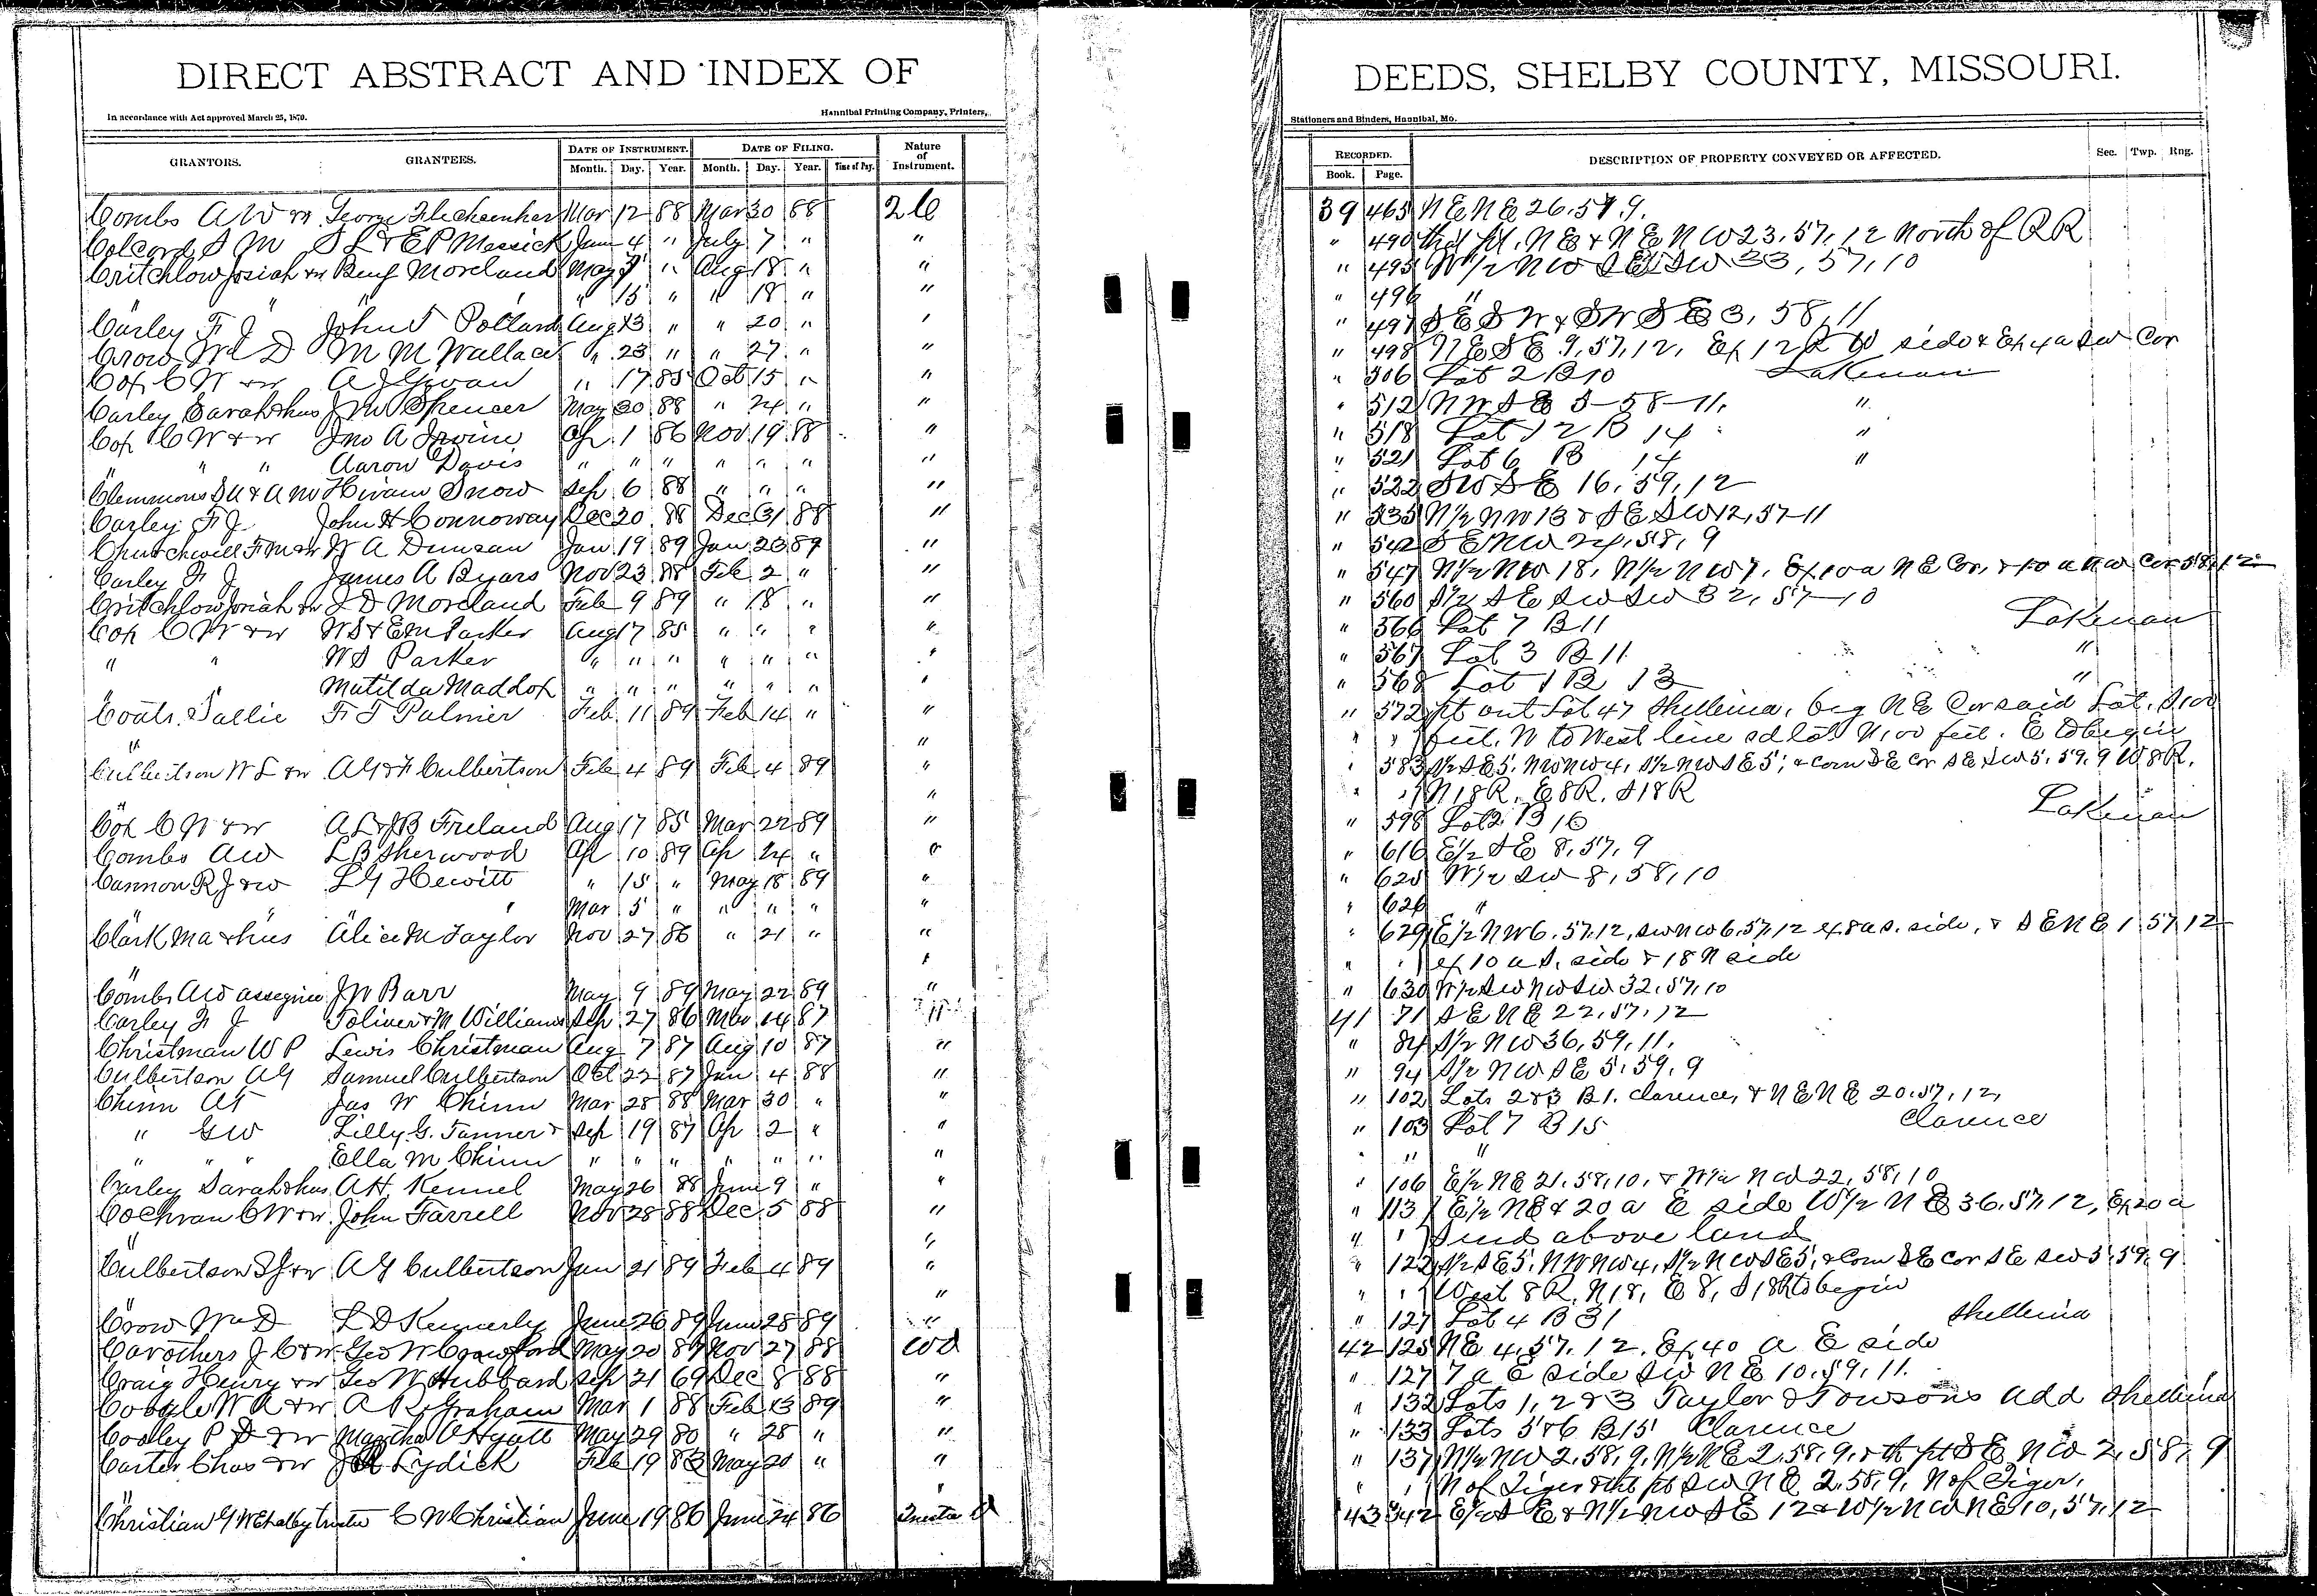 DIRECT ABSTRACT AND INDEX OF DEEDS, SHELBY COUNTY, MISSOURI.
In accordance with Act approved March 25, 1870. Hannibal Printing Company, Printers, Stationers and Binders, Hannibal, Mo.
GRANTORS. GRANTEES. DATE OF INSTRUMENT. DATE OF FILING. Nature of Instrument. RECORDED. DESCRIPTION OF PROPERTY CONVEYED OR AFFECTED. Sec. Twp. Rng.
Month. Day. Year. Month. Day. Year. Time of Day. Book. Page.
Combs A W George Mar 12 88 Mar 30 88 39 465 N E N E 26.57.9.
Colcord S M S L & E P Messick June 4 " July 7 " " " 490 N E & N E N W 23, 57, 12 North of R R
Critchlow Josiah &w Benj Moreland May " Aug 18 " " " 495 W 1/2 N W S E SW 33, 57, 10
" " " 15 " " 18 " " " 496 "
Carley F J John T Pollard Aug 13 " " 20 " " " 497 S E S W & S W S E 3, 58, 11
Crow Wm D M M Wallace " 23 " " 27 " " " 498 N E S E 9, 57, 12, Ex 12 R W side & Ex 4 a SW Cor
Cox C W &w A J " 17 85 Oct 15 " " " 506 Lot 2 B 10 Lakenan
Carley Sarah & hus J M Spencer May 30 88 " 24 " " " 512 N W S E 5-58-11. "
Cox C W & w Jno A Irvine Ap 1 86 Nov 19 88 " " 518 Lot 12 B 14 "
" " Aaron Davis " " " " " " " " 521 Lot 6 B 14 "
Clemmons S A & A M Hiram Snow Sep 6 88 " " " " " 522 SW S E 16, 59, 12
Carley F J John H Connoway Dec 20 88 Dec 31 88 " " 535 N 1/2 N W 13 & S E SW 12, 57-11
Churchwell F M &w W A Duncan Jan 19 89 Jan 23 89 " " 542 S E N W 24, 58, 9
Carley F J James A Byars Nov 23 88 Feb 2 " " " 547 N 1/2 N W 18, N 1/2 N W 7, Ex 10 a N E Cor, & 10 a N W Cor 58, 12
Critchlow Josiah &w L D Moreland Feb 9 89 " 18 " " " 560 S 1/2 S E SW SW 32, 57-10
Cox C W &w W S & E M Parker Aug 17 85 " " " " " 566 Lot 7 B 11 Lakenan
" " W S Parker " " " " " " " " 567 Lot 3 B 11 "
" Matilda Maddox " " " " " " " " 568 Lot 1 B 13 "
Coats Sallie F T Palmer Feb 11 89 Feb 14 " " " 572 pt out Lot 47 Shelbina, beg N E Cor said Lot, S 100
" " " " feet, W to West line sd lot N 100 feet. E to begin
Culbertson W L &w A G & F Culbertson Feb 4 89 Feb 4 89 " " 583 S 1/2 S E 5, NW NW 4, S 1/2 NW S E 5, & com S E Cor S E SW 5, 59, 9 W 8 R,
" " " N 18 R, E 8 R, S 18 R
Cox C W &w A L & J B Freland Aug 17 85 Mar 22 89 " " 598 Lot 2 B 16 Lakenan
Combs A W L B Sherwood Ap 10 89 Ap 24 " " " 616 E 1/2 S E 8, 57, 9
Cannon R J &w L G Hewitt " 15 " May 18 89 " " 625 W 1/2 SW 8, 58, 10
" " Mar 5 " " " " " " 626 "
Clark M A & hus Alice M Taylor Nov 27 86 " 21 " " " 629 E 1/2 N W 6, 57, 12, SW NW 6, 57, 12 ex 8 a S. side, & S E N E 1, 57, 12
" " " " ex 10 a S. side & 18 N side
Combs A W assignee J W Barr May 9 89 May 22 89 " " 630 W 1/2 SW NW SW 32, 57, 10
Carley F J Toliver & M Williams Sep 27 86 Mar 14 87 " 41 71 S E N E 22, 57, 12
Christman W P Lewis Christman Aug 7 87 Aug 10 87 " " 84 S 1/2 N W 36, 59, 11.
Culbertson A G Samuel Culbertson Oct 22 87 Jan 4 88 " " 94 S 1/2 N W S E 5, 59, 9
Chinn A T Jas W Chinn Mar 28 88 Mar 30 " " " 102 Lots 2 & 3 B 1. Clarence, & N E N E 20, 57, 12,
" G W Lilly G. Tanner & Sep 19 87 Ap 2 " " " 103 Lot 7 B 15 Clarence
" " " Ella M Chinn " " " " " " " " " "
Carley Sarah & hus A H. Kennel May 26 88 June 9 " " " 106 E 1/2 N E 21, 58, 10, & W 1/2 N W 22, 58, 10
Cochran C W &w John Farrell Nov 28 88 Dec 5 88 " " 113 E 1/2 N E & 20 a E side W 1/2 N E 36, 57, 12, Ex 20 a
" " " " S end above land
Culbertson S J &w A G Culbertson Jan 21 89 Feb 4 89 " " 122 S 1/2 S E 5, NW NW 4, S 1/2 N W S E 5, & Com S E cor S E SW 5, 59, 9
" " " West 8 R, N 18, E 8, S 18 R to begin
Crow Wm D L D Kennerly June 26 89 June 28 89 " " 127 Lot 4 B 31 Shelbina
Carothers J C &w Geo W Crawford May 20 87 Nov 27 88 WD 42 125 N E 4, 57, 12, Ex 40 a E side
Craig Henry &w Geo W Hubbard Sep 21 69 Dec 8 88 " " 127 7 a E side SW N E 10, 59, 11.
W A &w A R Graham Mar 1 88 Feb 13 89 " " 132 Lots 1, 2 & 3 Taylor & Towsons Add Shelbina
Cooley P D &w Martha A Hyatt May 29 80 " 28 " " " 133 Lots 5 & 6 B 15 Clarence
Carter Chas &w Lydick Feb 19 83 May 20 " " " 137 N 1/2 N W 2, 58, 9, N 1/2 N E 2, 58, 9, & th pt S E N W 2, 58, 9
" " " " N of Tiger & tht pt SW N E 2, 58, 9, N of Tiger,
Christian G W Shelby trustee C W Christian June 19 86 June 24 86 Trustee D 43 342 E 1/2 S E & N 1/2 NW S E 12 & W 1/2 N W N E 10, 57, 12